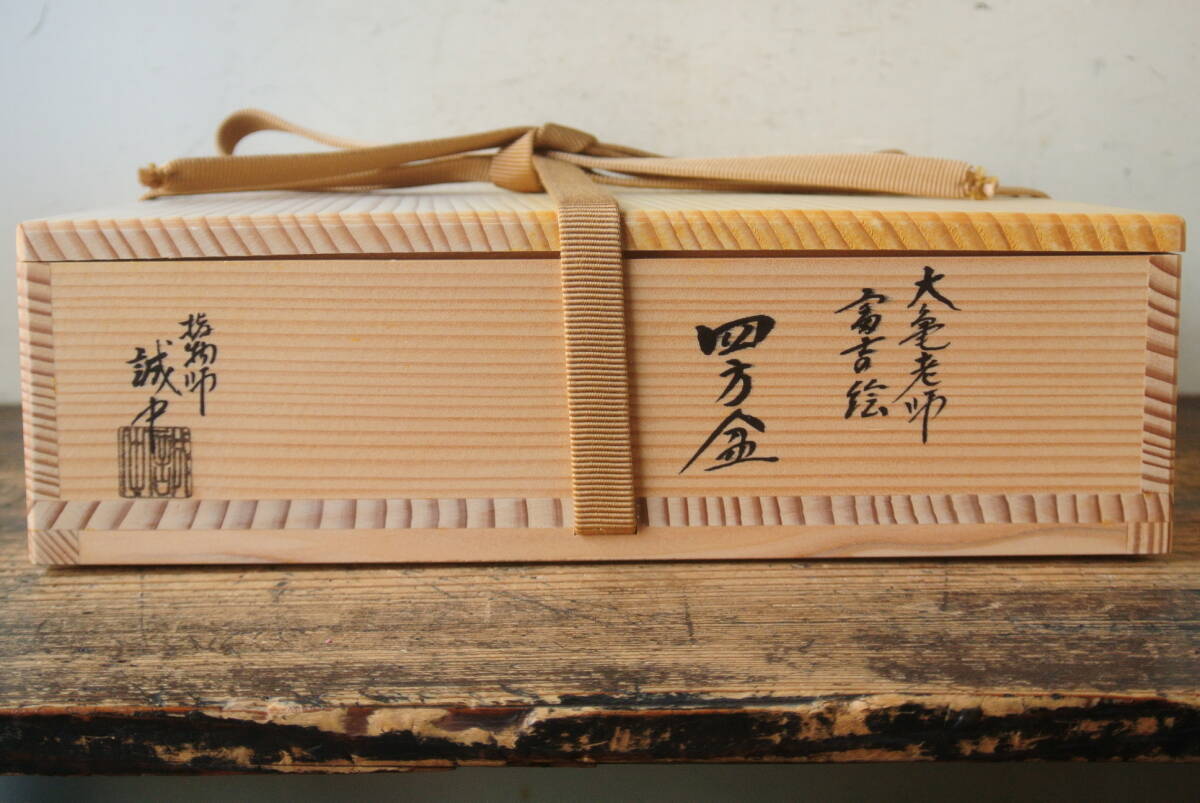 大亀老師
富吉絵
四方盆
指物師
誠中